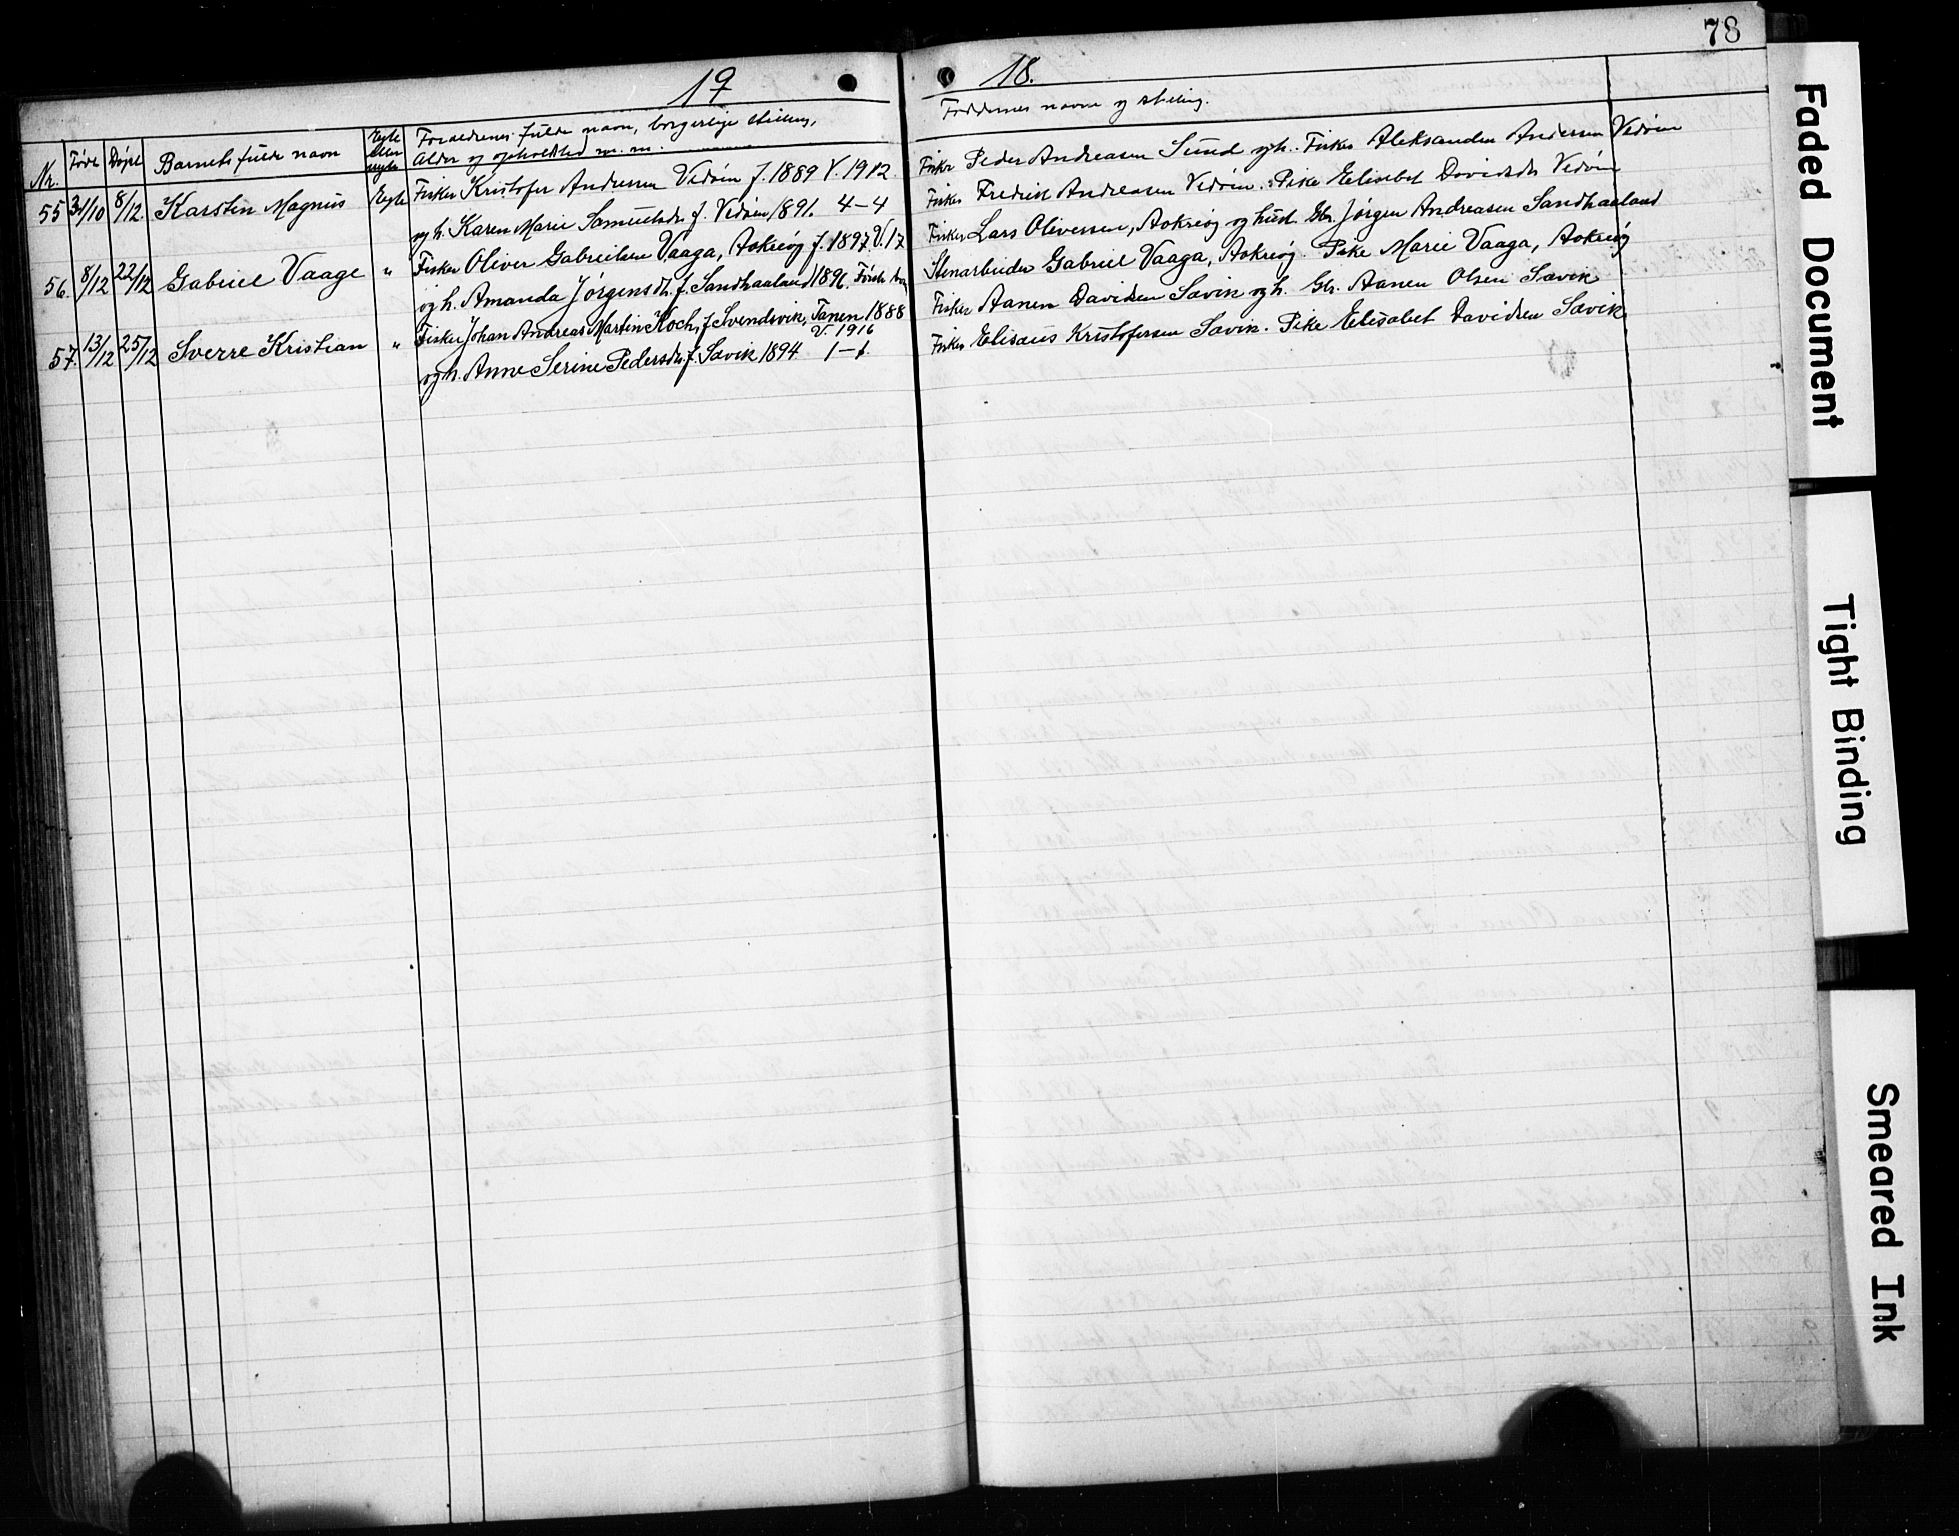 78
19 18.
Nr. Født Døpt Barnets fulde navn Egte eller uegte Foraeldrenes fulde navn, borgerlige stilling, Alder og opholdsted m. m. Faddernes navne og stilling.
55 31/10 8/12. Karsten Magnus Egte Fisker Kristofer Andersen Vedøin f. 1889 V. 1912
og h. Karen Marie Samuelsdr. f. Vedøin 1891. 4-4
Fisker Peder Andreasen Sund og h. Fisker Aleksander Andersen Vedøin
Fisker Fredrik Andreasen Vedøin. Pike Elisabet Davidsdr Vedøin
56. 8/12 22/12 Gabriel Vaage " Fisker Oliver Gabrielsen Vaaga, Aakreøg f. 1897 V. 17
og h. Amanda Jørgensdt. f. Sandhaaland 1896. Første
Fisker Lars Oliversen, Aakreøg og hust. Gbr. Jørgen Andreasen Sandhaaland
Stenarbeider Gabriel Vaaga, Aakreøg. Pike Marie Vaaga, Aakreøg
57. 13/12 25/12 Sverre Kristian " Fisker Johan Andreas Martin Koch, f. Svendsvik, Tanen 1888
V. 1916
og h. Anne Serine Pedersdr. f. Sævik 1894 1-1.
Fisker Aanen Davidsen Sævik og h. Gbr. Aanen Olsen Sævik
Fisker Elisæus Kristofersen Sævik. Pike Elisabet Davidsen Sævik
Faded Document
Tight Binding
Smeared Ink